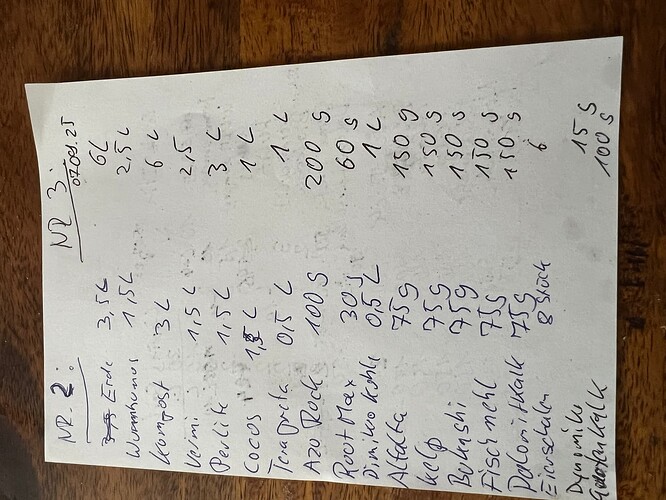 NR. 2: NR 3.
07.09.25
Erde 3,5L 6L
Wurmhumus 1,5L 2,5L
Kompost 3 L 6 L
Vermi 1,5 L 2,5
Perlite 1,5 L 3 L
Cocos L 1 L
Terrapreta 0,5 L 1 L
Azo Rock 100 g 200 g
Root Max 30 g 60 g
Kohle 0,5L 1L
Alfalfa 75g 150 g
Kelp 75g 150 g
Bokashi 75g 150 g
Fischmehl 75g 150 g
Dolomitkalk 75g 150 g
Eierschalen 8 Stück 6
Dynomiko 15 g
kalk 100 g